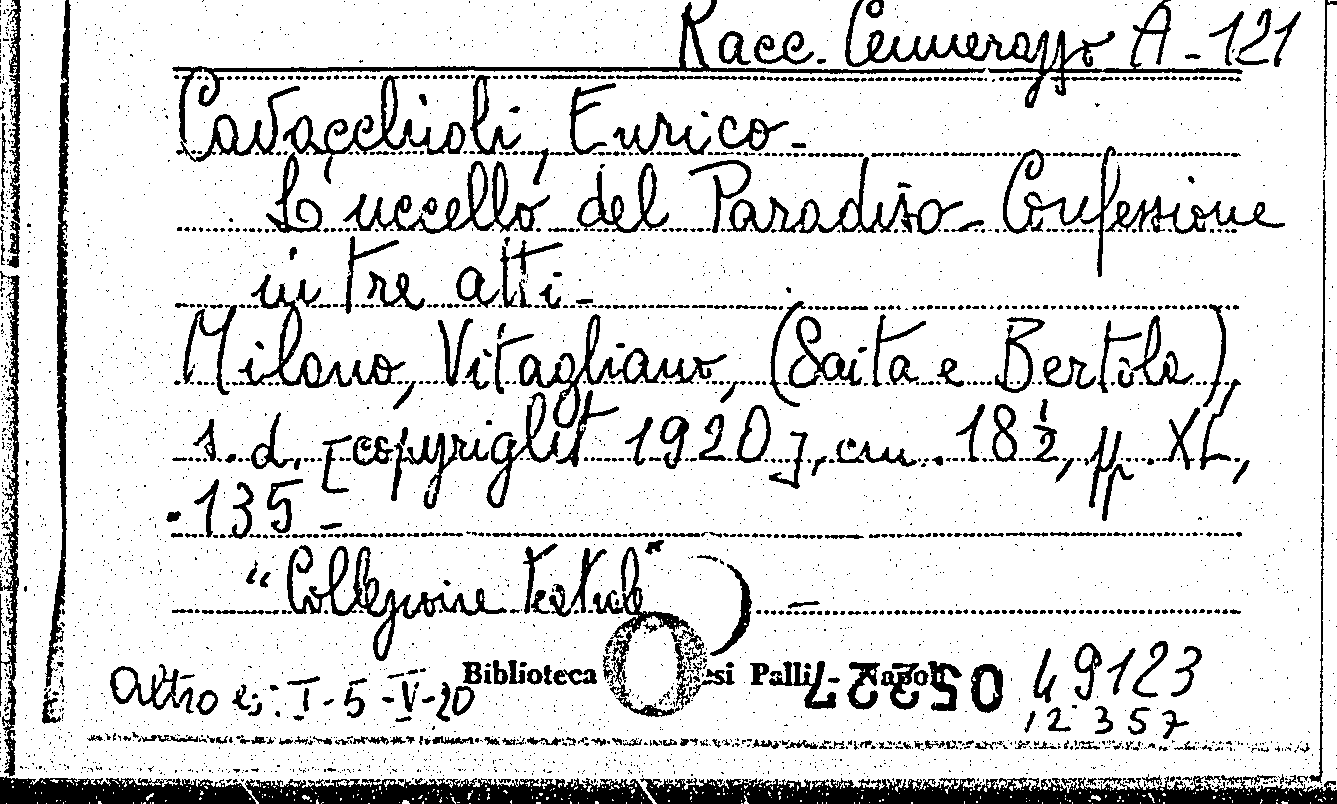 Racc. Cennerazzo A-121
Cavacchioli, Enrico-
L'uccello del Paradiso- Confessione
in tre atti-
Milano, Vitagliano, (Saita e Bertola),
s. d. [copyright 1920], cm. 18½, pp. XL,
135-
"Collezione teatrale" -
Biblioteca esi Palli - Napoli
Altro es: I-5-V-20
05227 49123
12357